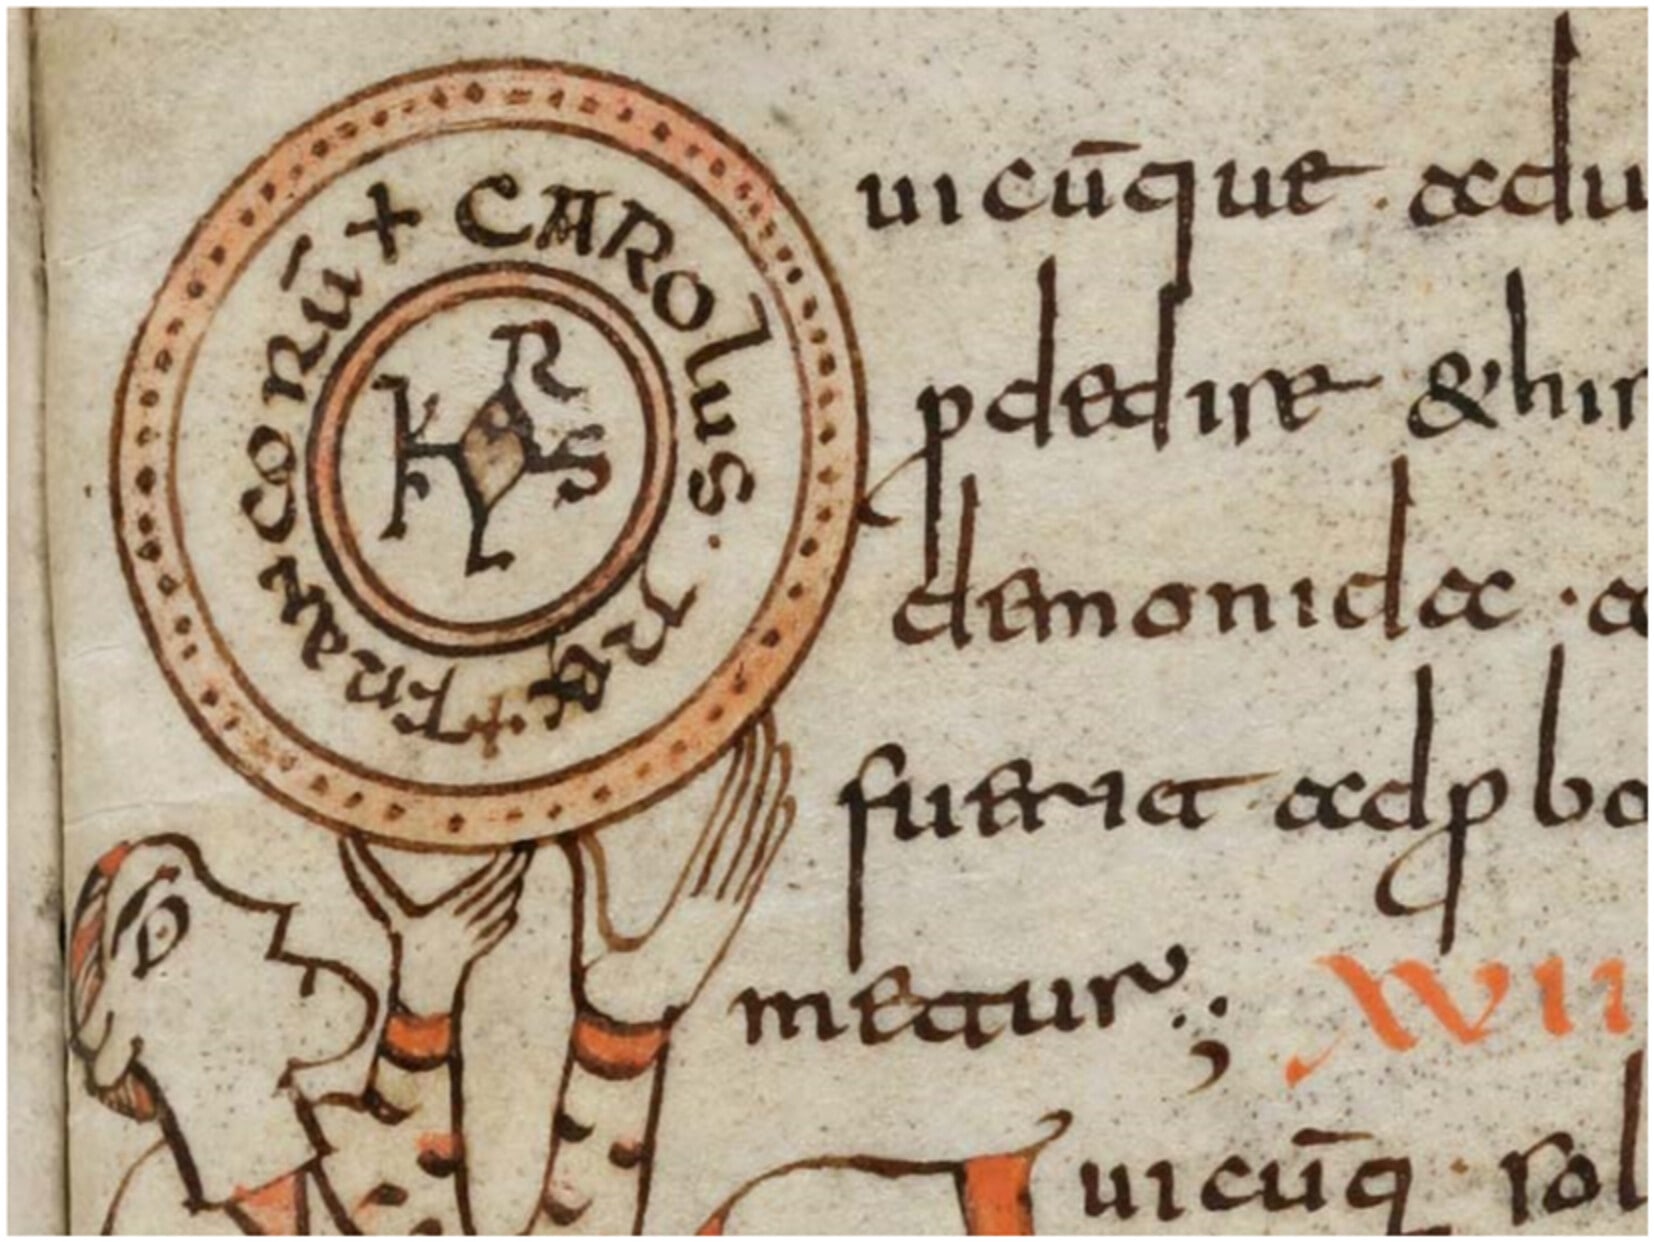 + CAROlus · rex + francorū
K R S L
uicūque · adu
pdedire & hir
demonida · a
fueria adp bo
metur;
XVII
uicūq · sol